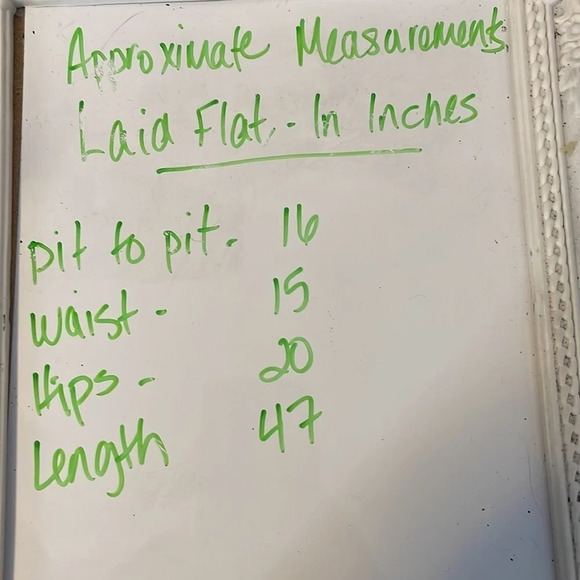 Approximate Measurements
Laid Flat - In Inches
pit to pit - 16
waist - 15
Hips - 20
Length 47